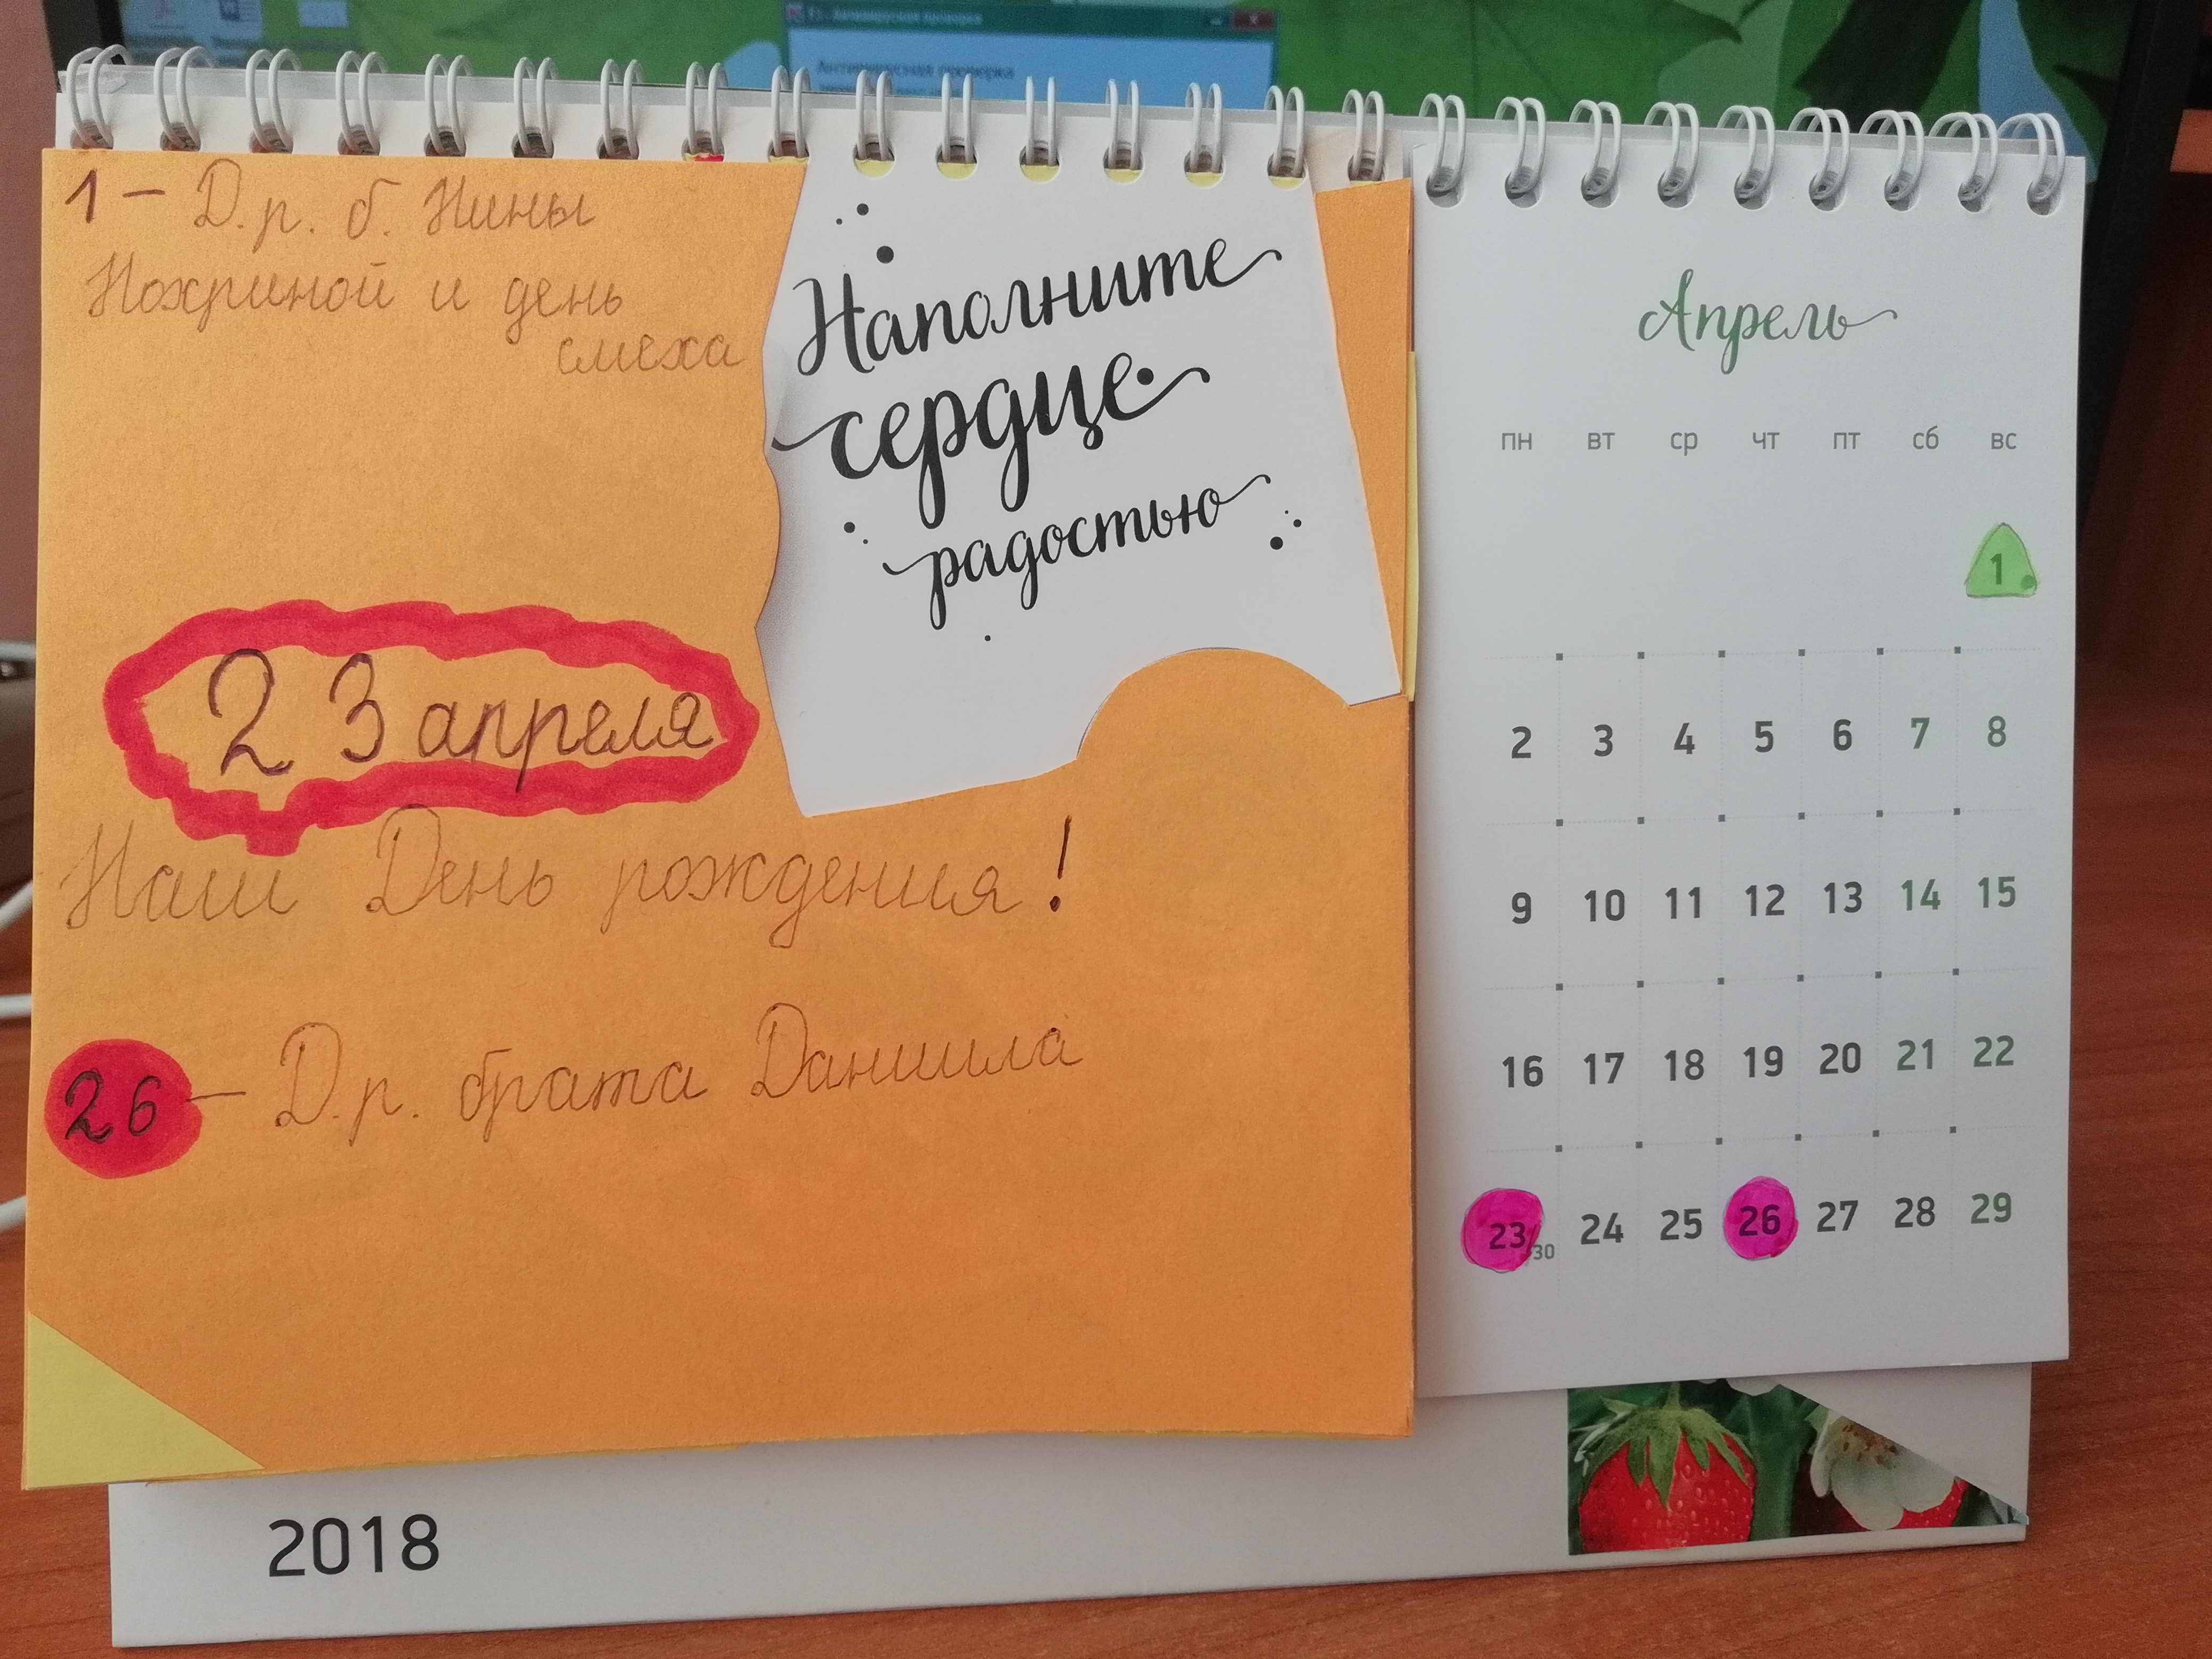 Антивирусная проверка
1 - Д.р. б. Нины
Нохриной и день
смеха
Наполните
сердце
радостью
23 апреля
Наш День рождения!
26 - Д.р. брата Даниила
Апрель
пн вт ср чт пт сб вс
1
2 3 4 5 6 7 8
9 10 11 12 13 14 15
16 17 18 19 20 21 22
23/30 24 25 26 27 28 29
2018